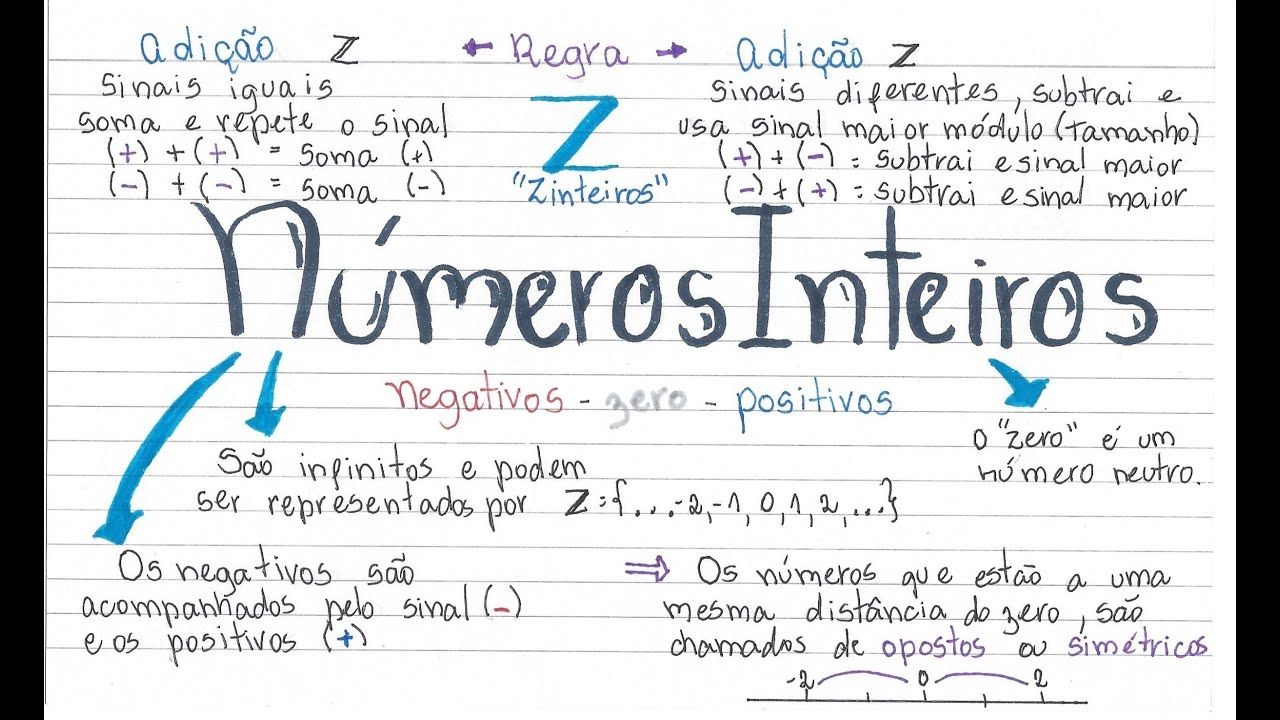 Adição Z ← Regra → Adição Z
Sinais iguais
soma e repete o sinal
(+) + (+) = soma (+)
(-) + (-) = soma (-)
Z
"Zinteiros"
Sinais diferentes, subtrai e
usa sinal maior módulo (tamanho)
(+) + (-) = subtrai e sinal maior
(-) + (+) = subtrai e sinal maior
Números Inteiros
negativos - zero - positivos
São infinitos e podem
ser representados por Z={...-2,-1,0,1,2,...}
O "zero" é um
número neutro.
Os negativos são
acompanhados pelo sinal (-)
e os positivos (+)
⇒ Os números que estão a uma
mesma distância do zero, são
chamados de opostos ou simétricos
-2 0 2